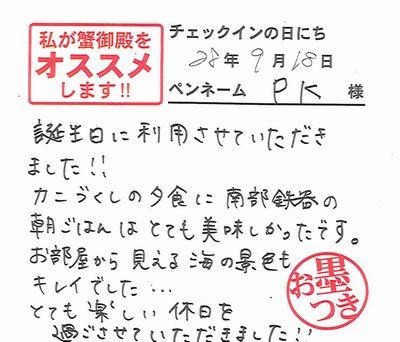 私が蟹御殿を
オススメ
します!!
チェックインの日にち
28年9月18日
ペンネーム PK 様
誕生日に利用させていただき
ました!!
カニづくしの夕食に南部鉄器の
朝ごはんはとても美味しかったです。
お部屋から見える海の景色も
キレイでした…
とても楽しい休日を
過ごさせていただきました!!
お墨つき